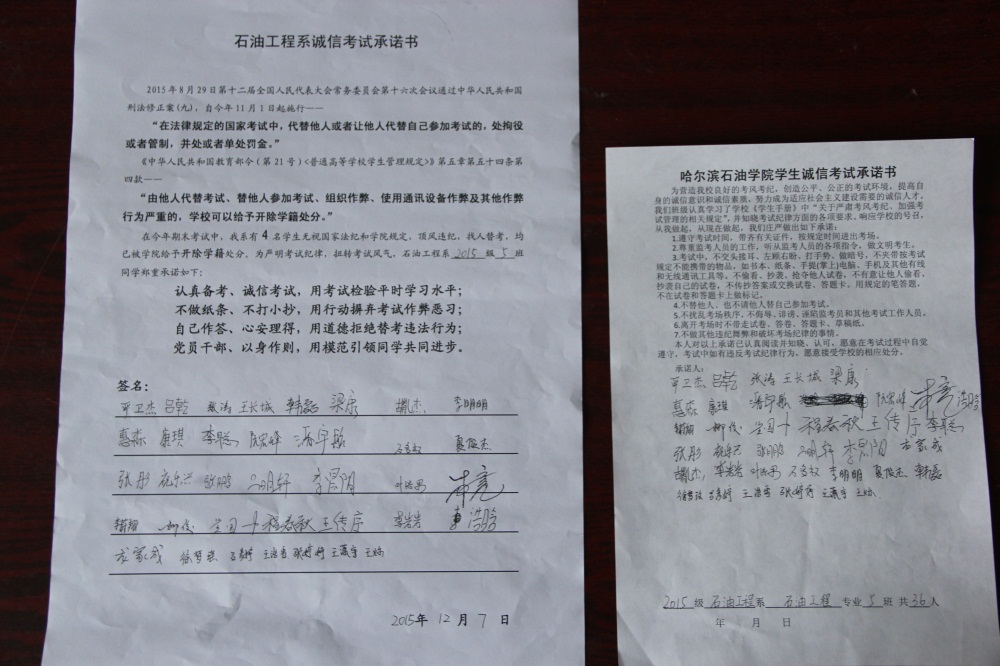 石油工程系诚信考试承诺书
2015年8月29日第十二届全国人民代表大会常务委员会第十六次会议通过中华人民共和国
刑法修正案(九)，自今年11月1日起施行——
“在法律规定的国家考试中，代替他人或者让他人代替自己参加考试的，处拘役
或者管制，并处或者单处罚金。”
《中华人民共和国教育部令(第21号)<普通高等学校学生管理规定>》第五章第五十四条第
四款——
“由他人代替考试、替他人参加考试、组织作弊、使用通讯设备作弊及其他作弊
行为严重的，学校可以给予开除学籍处分。”
在今年期末考试中，我系有4名学生无视国家法纪和学院规定，顶风违纪，找人替考，均
已被学院给予开除学籍处分。为严明考试纪律，扭转考试风气，石油工程系2015级5班
同学郑重承诺如下：
认真备考、诚信考试，用考试检验平时学习水平；
不做纸条、不打小抄，用行动摒弃考试作弊恶习；
自己作答、心安理得，用道德拒绝替考违法行为；
党员干部、以身作则，用模范引领同学共同进步。
签名：
平卫杰 吕乾 张涛 王长城 韩磊 梁康 李明明
惠淼 康琪 李聪 潘宇航 夏俊杰
张彤 张鹏 李景阳
柳俊 程春秋 王传序 李岩岩 浩鹏
2015年12月7日
哈尔滨石油学院学生诚信考试承诺书
为营造我校良好的考风考纪，创造公平、公正的考试环境，提高自
身的诚信意识和诚信素质，努力成为适应社会主义建设需要的诚信人才，
我们班级认真学习了学校《学生手册》中“关于严肃考风考纪、加强考
试管理的相关规定”，并知晓考试纪律方面的各项要求，响应学校的号召，
从我做起，从现在做起，我们庄严做出如下承诺：
1.遵守考试时间，带齐有关证件，按规定时间进出考场。
2.尊重监考人员的工作，听从监考人员的各项指令，做文明考生。
3.考试中，不交头接耳、左顾右盼、打手势、做暗号，不夹带按考试
规定不能携带的物品，如书本、纸条、手提(掌上)电脑、手机及其他有线
和无线通讯工具等，不偷看、抄袭、抢夺他人试卷，不有意让他人偷看、
抄袭自己的试卷，不传抄答案或交换试卷、答题卡，用规定的笔答题，
不在试卷和答题卡上做标记。
4.不替他人、也不请他人替自己参加考试。
5.不扰乱考场秩序，不侮辱、诽谤、诬陷监考员和其他考试工作人员。
6.离开考场时不带走试卷、答卷、答题卡、草稿纸。
7.不做其他违纪舞弊和破坏考场纪律的事情。
本人对以上承诺已认真阅读并知晓、认可，愿意在考试过程中自觉
遵守，考试中如有违反考试纪律行为，愿意接受学校的相应处分。
承诺人：
平卫杰 吕乾 张涛 王长城 梁康
惠淼 康琪 潘宇航 浩鹏
柳俊 程春秋 王传序 李聪
张彤 张鹏 李景阳
李岩岩 李明明 夏俊杰 韩磊
2015级 石油工程系 石油工程 专业 5班 共36人
年 月 日